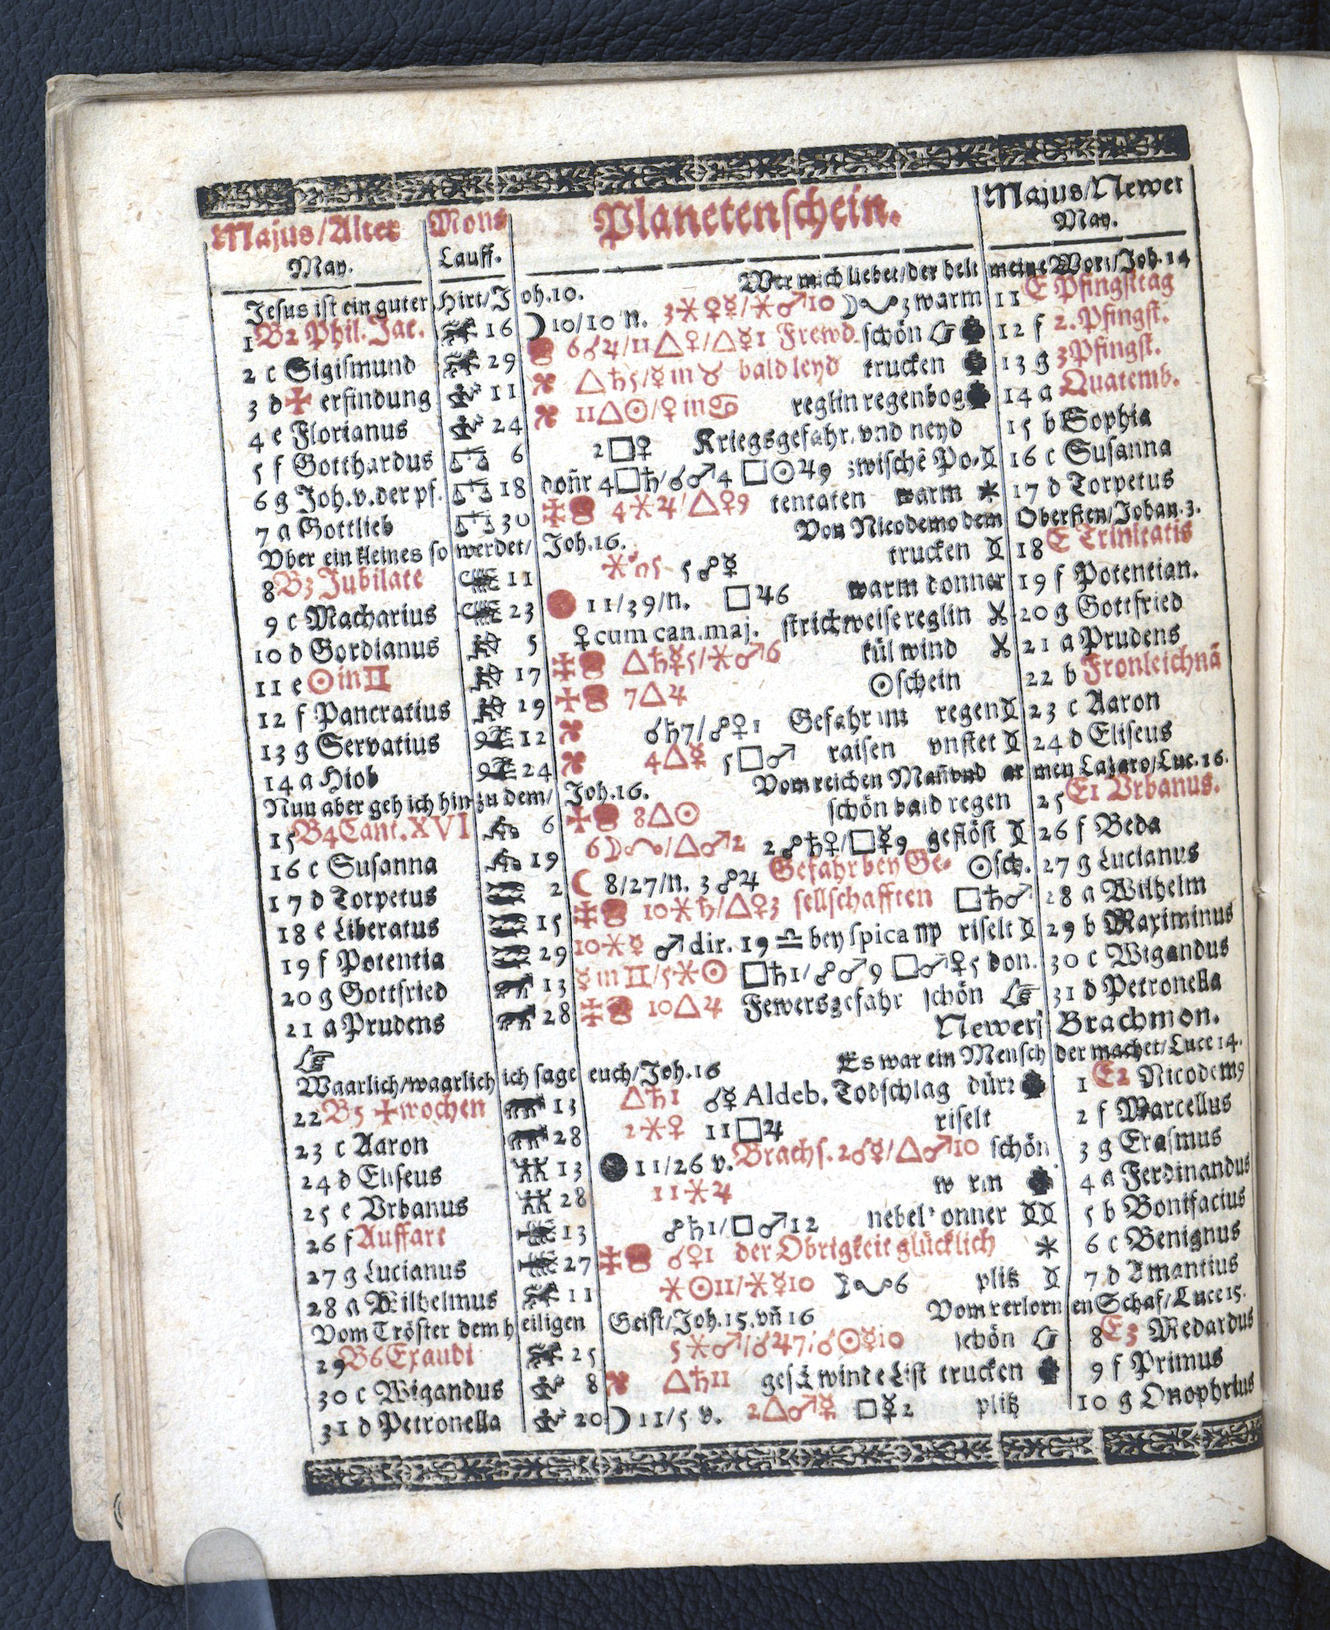 Majus/Alter Mons Planetenschein. Majus/Newer
May. Lauff. May.
Jesus ist ein guter Hirt/Joh.10. Wer mich liebet/der helt meine Wort/Joh.14
1 B2 Phil. Jac. 16 ☽ 10/10 n. 3⚹♀☿/⚹♂10 3 warm 11 E Pfingsttag
2 c Sigismund 29 6☌♃/11△♀/△☿1 Frewd schön 12 f 2. Pfingst.
3 d ✠ erfindung 11 △♄5/☿ in ♉ bald leyd trucken 13 g 3 Pfingst.
4 e Florianus 24 11△☉/♀ in ♋ reglin regenbog 14 a Quatemb.
5 f Gotthardus ♎ 6 2□♀ Kriegsgefahr, vnd neyd 15 b Sophia
6 g Joh. v. der pf. ♎ 18 doñr 4□♄/☍♂4 □☉♃9 zwischē Po- 16 c Susanna
7 a Gottlieb ♎ 30 4⚹♃/△♀9 tentaten warm ⚹ 17 d Torpetus
Vber ein kleines so werdet/Joh.16. Von Nicodemo dem Obersten/Johan.3.
8 B3 Jubilate 11 5☍☿ trucken 18 E Trinitatis
9 c Macharius 23 11/39/n. □♃6 warm donner 19 f Potentian.
10 d Gordianus 5 ♀ cum can. maj. strichweise reglin 20 g Gottfried
11 e ☉ in ♊ 17 △♄☿5/⚹♂6 kül wind 21 a Prudens
12 f Pancratius 29 7△♃ ☉schein 22 b Fronleichnā
13 g Servatius 12 ☌♄7/☍♀1 Gefahr im regen 23 c Aaron
14 a Hiob 24 4△☿ 5□♂ raisen vnstet 24 d Eliseus
Nun aber geh ich hin zu dem/Joh.16. Vom reichen Mañ vnd armen Lazaro/Luc.16.
15 B4 Cant. XVI 6 8△☉ schön bald regen 25 E1 Vrbanus.
16 c Susanna 19 6☽ /△♂2 2☍♄♀/□☿9 geflöst 26 f Beda
17 d Torpetus 2 ☾ 8/27/n. 3☍♃ Gefahr bey Ge- ☉sch. 27 g Lucianus
18 e Liberatus 15 10⚹♄/△♀3 sellschafften □♄♂ 28 a Wilhelm
19 f Potentia 29 10⚹☿ ♂ dir. 19 ♎ bey spica ♍ riselt 29 b Maximinus
20 g Gottfried 13 ☿ in ♊/5⚹☉ □♄1/☍♂9 □♂♀5 don. 30 c Wigandus
21 a Prudens 28 10△♃ Fewersgefahr schön ☞ 31 d Petronella
☞ Newer Brachmon.
Waarlich/waarlich ich sage euch/Joh.16 Es war ein Mensch der machet/Luce 14.
22 B5 ✠wochen 13 △♄1 ☌☿ Aldeb. Todschlag dürr 1 E2 Nicodem9
23 c Aaron 28 2⚹♀ 11□♃ riselt 2 f Marcellus
24 d Eliseus 13 ● 11/26 v. Brachs. 2☌☿/△♂10 schön 3 g Erasmus
25 e Vrbanus 28 11⚹♃ 4 a Ferdinandus
26 f Auffart 13 ☍♄1/□♂12 nebel 5 b Bonifacius
27 g Lucianus 27 ☌♀1 der Obrigkeit glücklich ⚹ 6 c Benignus
28 a Wilhelmus 11 ⚹☉11/⚹☿10 6 plitz 7 d Amantius
Vom Tröster dem heiligen Geist/Joh.15. vñ 16 Vom verlornen Schaf/Luce 15.
29 B6 Exaudi 25 5⚹♂/☌♃7/☌☉☿10 schön ☞ 8 E3 Medardus
30 c Wigandus 8 △♄11 geschwinde List trucken 9 f Primus
31 d Petronella 20 ☽ 11/5 v. 2△♂☿ □☿2 plitz 10 g Onophrius